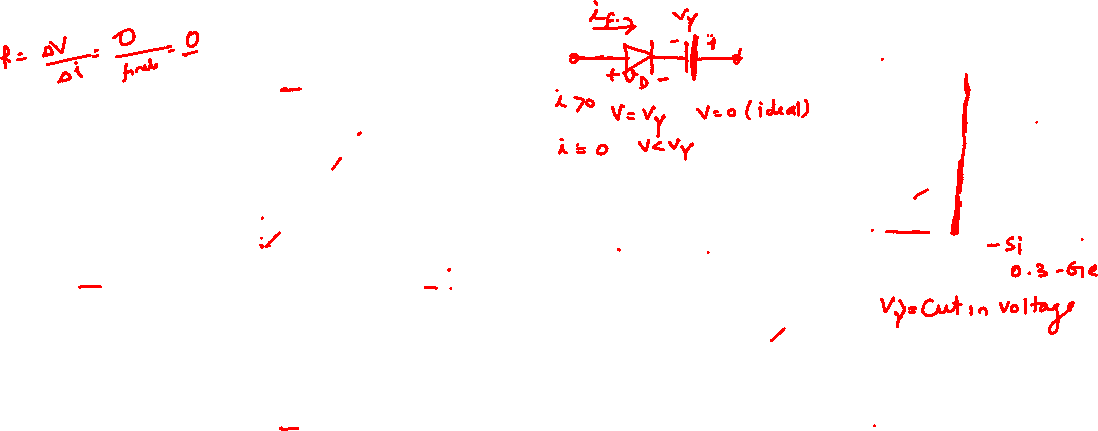 R = ΔV/Δi = 0/finite = 0
i_f → Vγ
- +
+ V_D -
i>0 V=Vγ V=0 (ideal)
i=0 V<Vγ
- Si
0.3 - Ge
Vγ = Cut in voltage